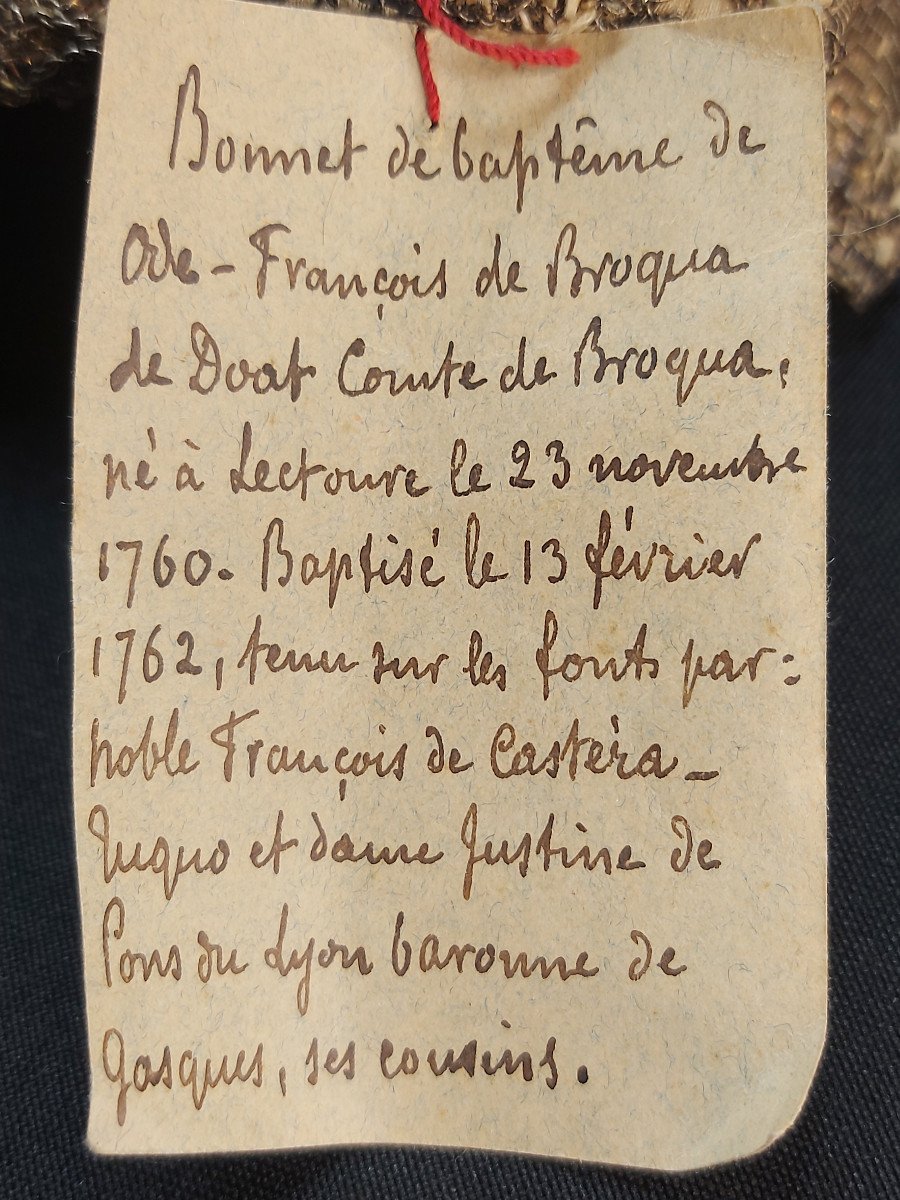 Bonnet de baptême de
Ode-François de Broqua
de Doat Comte de Broqua,
né à Lectoure le 23 novembre
1760. Baptisé le 13 février
1762, tenu sur les fonts par:
noble François de Castéra-
et dame Justine de
Pons du Lyon baronne de
Gasques, ses cousins.